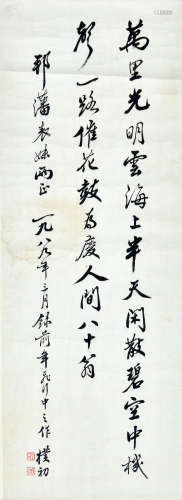 萬里光明雲海上半天閑散碧空中機
聲一路催花鼓為慶人間八十翁
郓藩表妹兩正 一九八九年三月錄前年飛行中之作 樸初